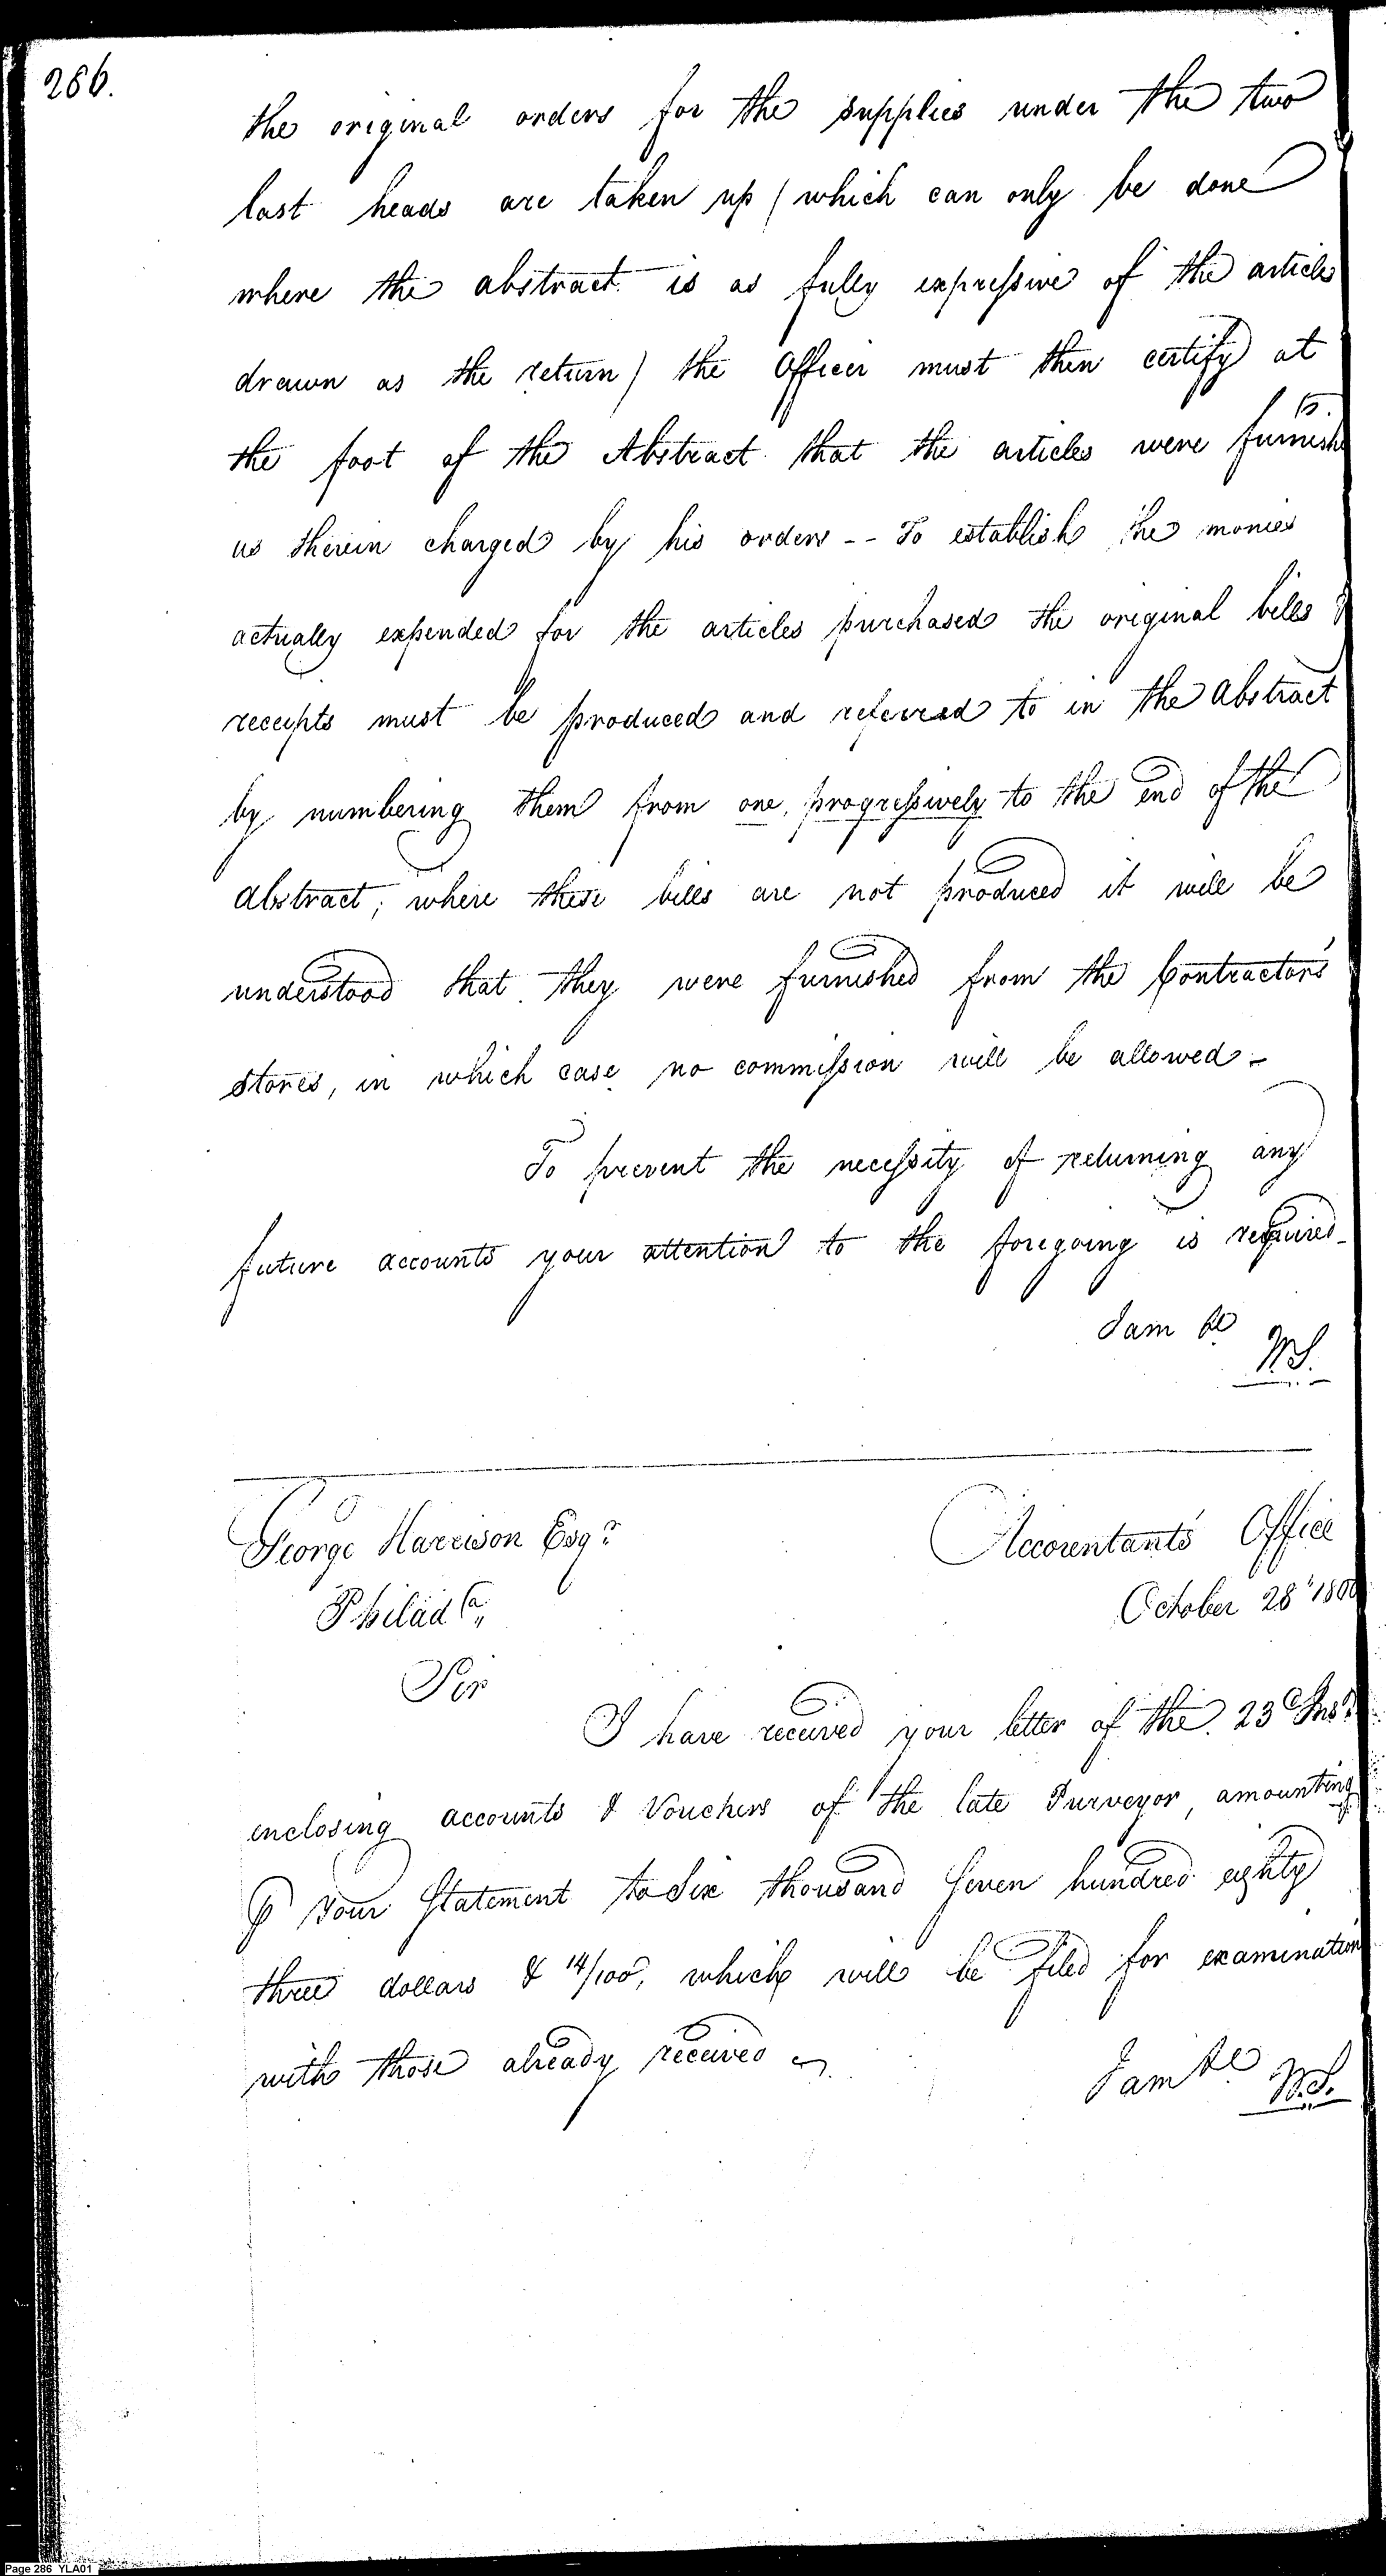 286.
the original orders for the supplies under the two
last heads are taken up (which can only be done
where the abstract is as fully expressive of the articles
drawn as the return) the Officer must then certify at
the foot of the Abstract that the articles were furnish
as therein charged by his orders -- To establish the monies
actually expended for the articles purchased the original bills &
receipts must be produced and referred to in the abstract
by numbering them from one, progressively to the end of the
abstract; where these bills are not produced it will be
understood that they were furnished from the Contractors
stores, in which case no commission will be allowed -
To prevent the necessity of returning any
future accounts your attention to the foregoing is required -
I am &c
W.S.
George Harrison Esqr.
Accountant's Office
Philada.
October 28th 1800
Sir
I have received your letter of the 23d Inst.
enclosing accounts & Vouchers of the late Purveyor, amounting
⅌ your Statement to Six thousand Seven hundred eighty
three dollars & 14/100, which will be filed for examination
with those already received
I am &c
W.S.
Page 286 YLA01